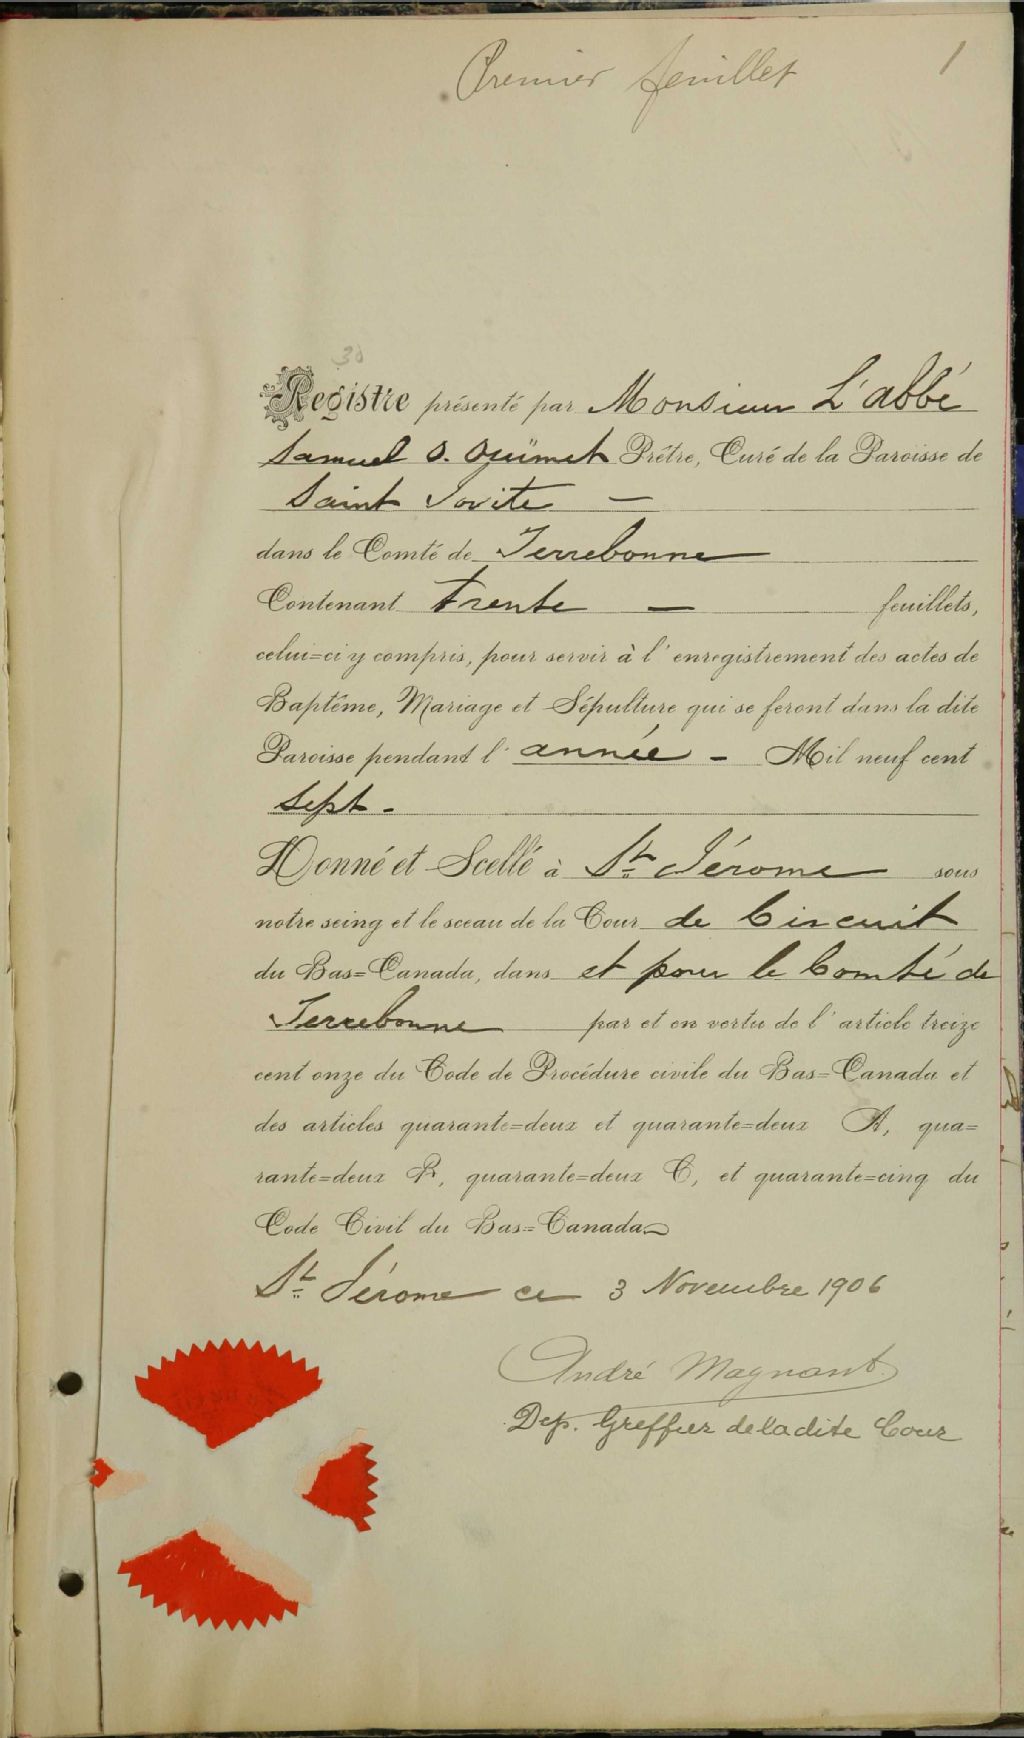 Premier feuillet 1
30
Registre présenté par Monsieur L'abbé
Samuel O. Ouimet Prêtre, Curé de la Paroisse de
Saint Jovite —
dans le Comté de Terrebonne
Contenant trente — feuillets,
celui=ci y compris, pour servir à l'enregistrement des actes de
Baptême, Mariage et Sépulture qui se feront dans la dite
Paroisse pendant l'année - Mil neuf cent
Sept -
Donné et Scellé à St Jérome sous
notre seing et le sceau de la Cour de Circuit
du Bas=Canada, dans et pour le Comté de
Terrebonne par et en vertu de l'article treize
cent onze du Code de Procédure civile du Bas=Canada et
des articles quarante=deux et quarante=deux A, qua=
rante=deux B, quarante=deux C, et quarante=cinq du
Code Civil du Bas=Canada
St Jérome ce 3 Novembre 1906
André Magnant
Dep. Greffier de la dite Cour